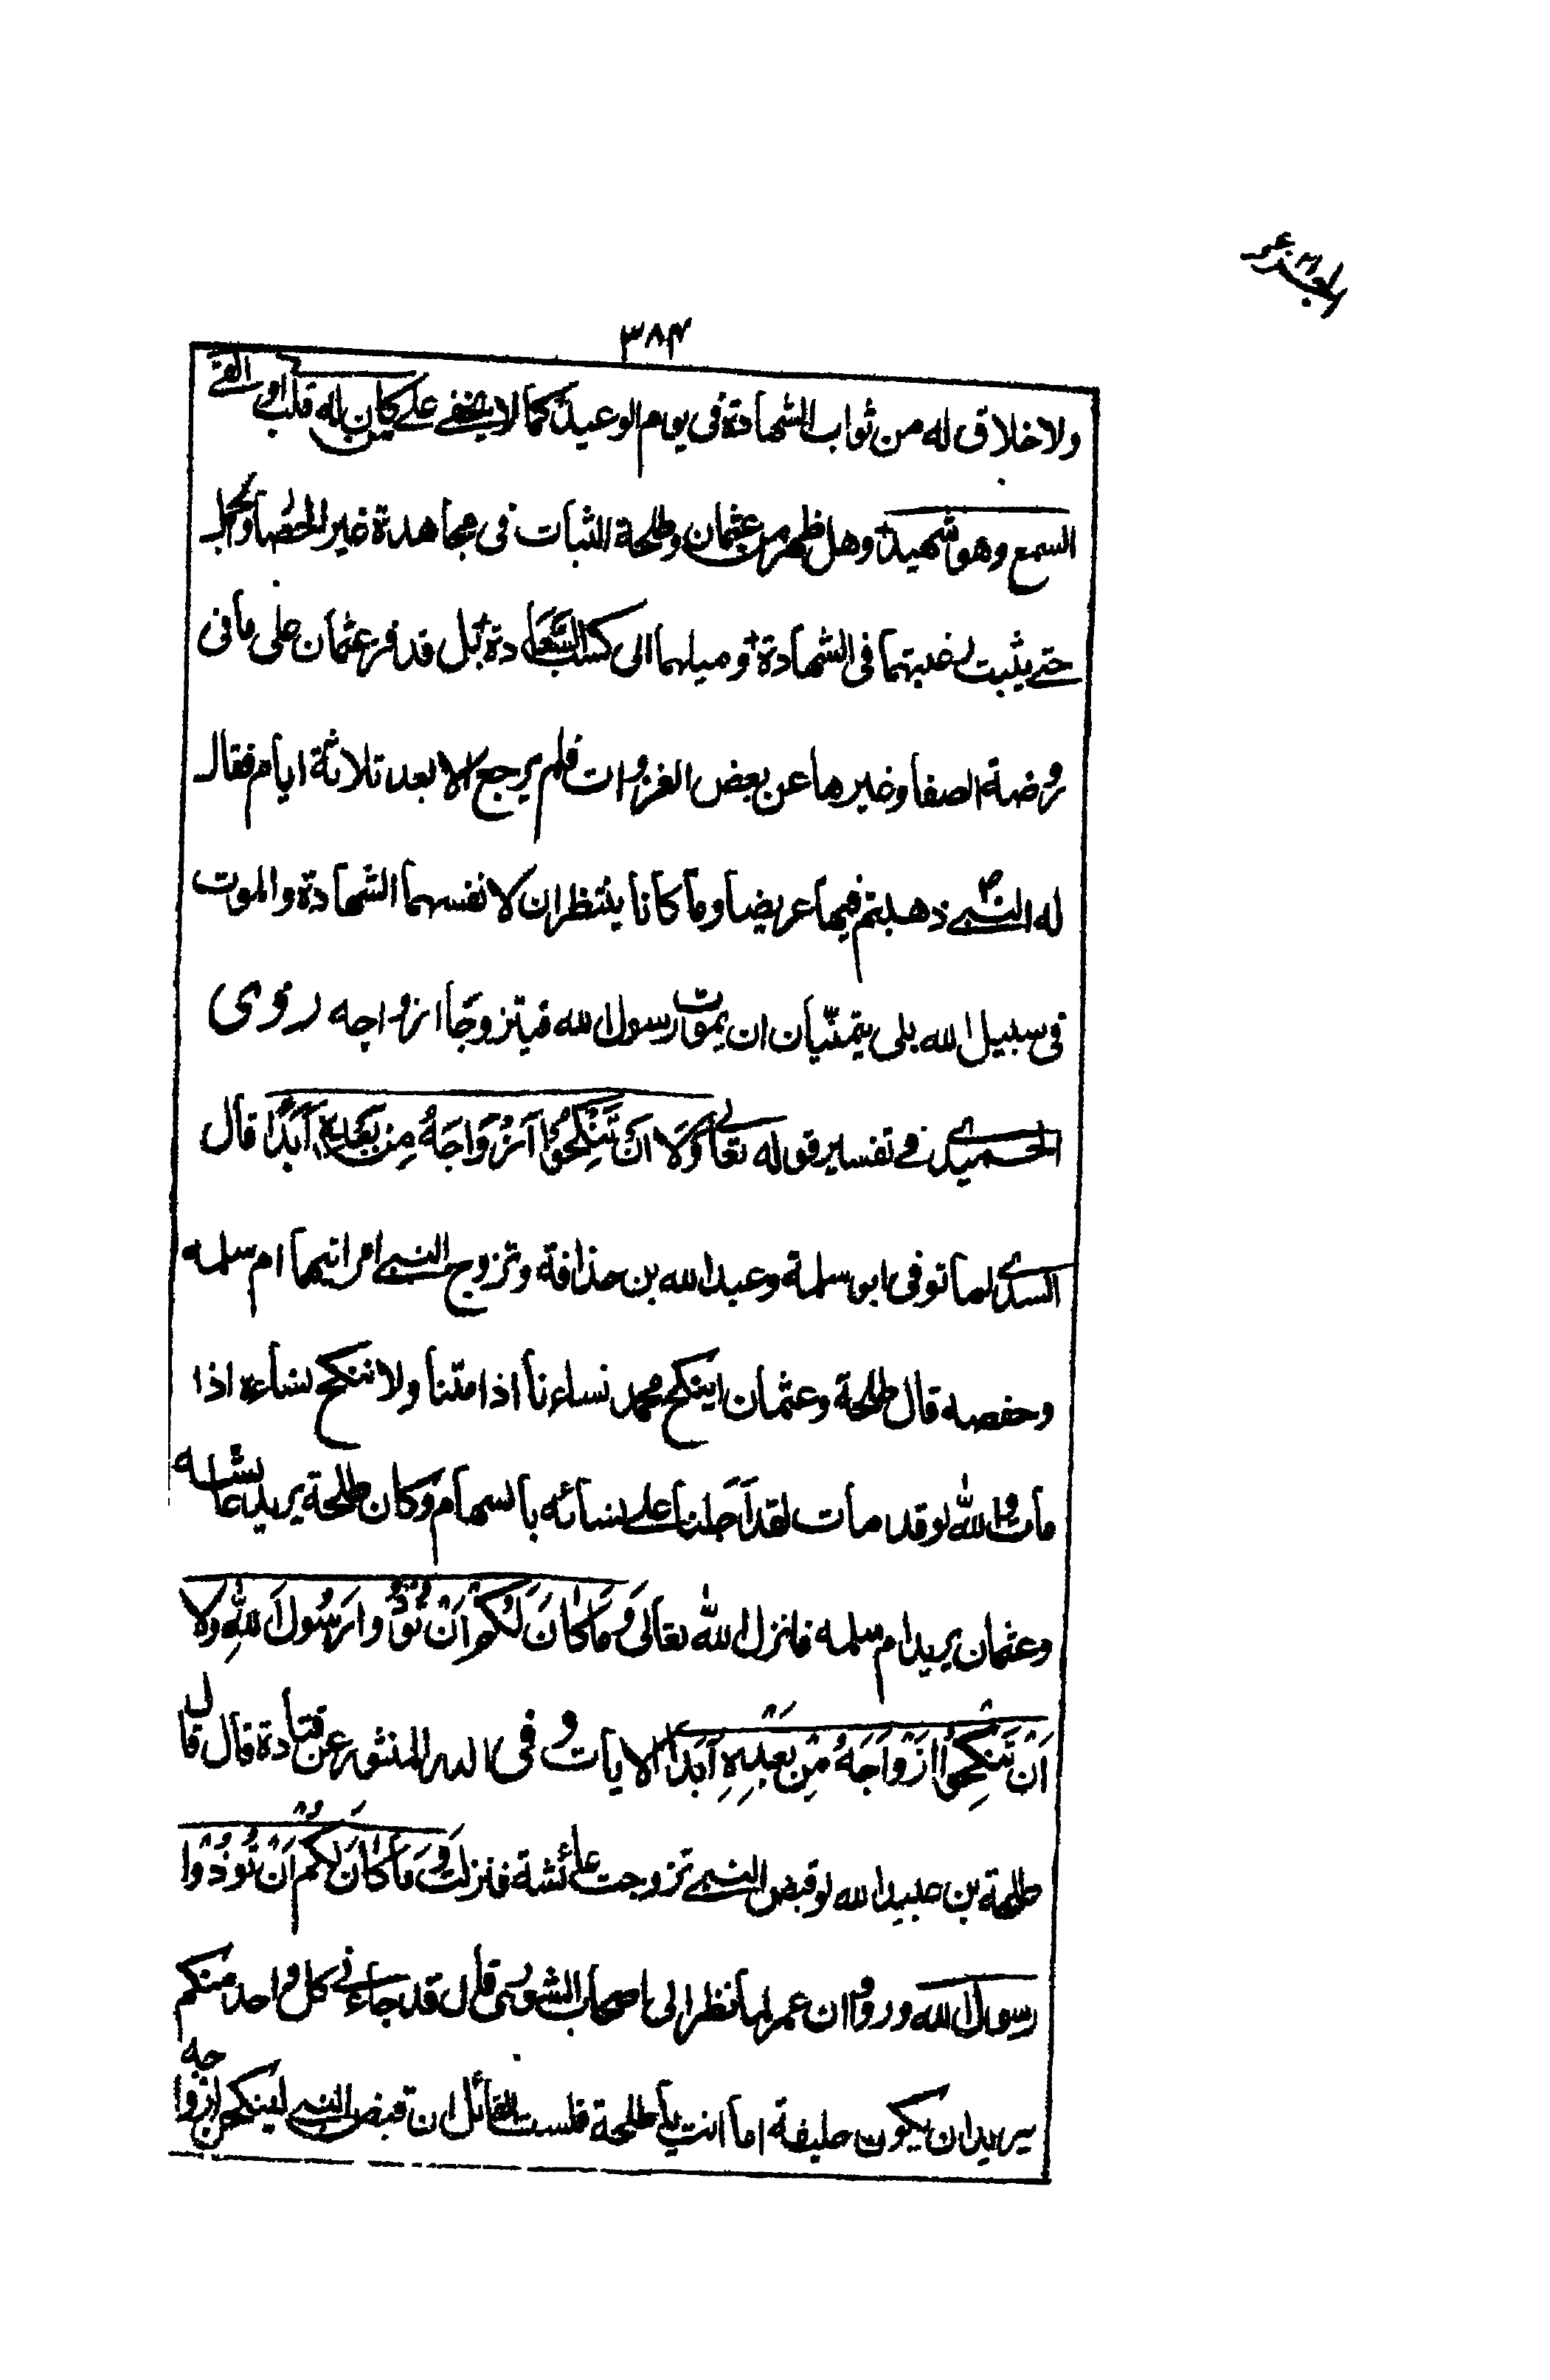 ٣٨٤
ولا خلاق له من ثواب الشهادة في يوم الوعيد كما لا يخفى على من كان له قلب او القى
السمع وهو شهيد وهل ظهر من عثمان وطلحة الثبات في مجاهدة خير الخصا
حتى يثبت رغبتهما في الشهادة وميلهما الى كسب السعادة بل قد فر عثمان على ما في
روضة الصفا وغيرها عن بعض الغزوات فلم يرجع الا بعد ثلاثة ايام فقال
له النبي ص ذهبتم فيها عريضا وما كانا ينتظران لانفسهما الشهادة والموت
في سبيل الله بلى يتمنيان ان يموت رسول الله فيتزوجا ازواجه روى
الحميدي في تفسير قوله تعالى وَلَا اَنْ تَنْكِحُوْا اَزْوَاجَهُ مِنْ بَعْدِهِ اَبَدًا قال
السدي لما توفى ابو سلمة وعبد الله بن حذافة وتزوج النبي امراتيهما ام سلمه
وحفصه قال طلحة وعثمان اينكح محمد نساءنا اذا متنا ولا ننكح نساءه اذا
مات والله لو قد مات لقد اجلنا على نسائه بالسهام وكان طلحة يريد عائشه
وعثمان يريد ام سلمه فانزل الله تعالى وَمَا كَانَ لَكُمْ اَنْ تُؤْذُوا رَسُولَ اللهِ وَلَا
اَنْ تَنْكِحُوا اَزْوَاجَهُ مِنْ بَعْدِهِ اَبَدًا الايات و في الدر المنثور عن قتادة قال قال
طلحة بن عبيد الله لو قبض النبي تزوجت عائشة فنزلت وَمَا كَانَ لَكُمْ اَنْ تُؤْذُوْا
رسول الله ورووا ان عمر لما نظر الى اصحاب الشورى قال قد جاءني كل واحد منكم
يريد ان يكون خليفة اما انت يا طلحة فلست القائل ان قبض النبي لينكحن ازواجه